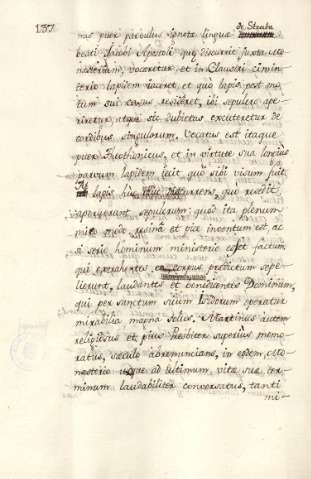 137.
nas puer parvulus ignota lingua
beati Jacobi Apostoli que discurrit juxta mo-
nasterium, vocaretur, et in Claustri cimin-
terio lapidem jaceret, et quo lapis post mo-
tum sui casus resideret, ibi sepulcro ape-
riretur, utque sic dubietas excuteretur de
cordibus singulorum. Vocatus est itaque
puer, et in virtute sua longius
parvum lapidem jecit quo sibi visum fuit,
lapis huc illuc discurrens, quo resedit
aperuerunt sepulcrum: quod ita plenum
miro modo resina et pice inventum est, ac
si serio hominum ministerio esset factum
qui corpus predictum sepe-
lierunt, laudantes et benedicentes Dominum,
qui per sanctum suum Isidorum operatur
mirabilia magna solus. Martinus autem
religiosus et pius Presbiter superius memo-
ratus, sæculo abrenuncians, in eodem mo-
nasterio usque ad ultimum vitæ suæ ter-
minum laudabiliter conversatus, tanti
mi-